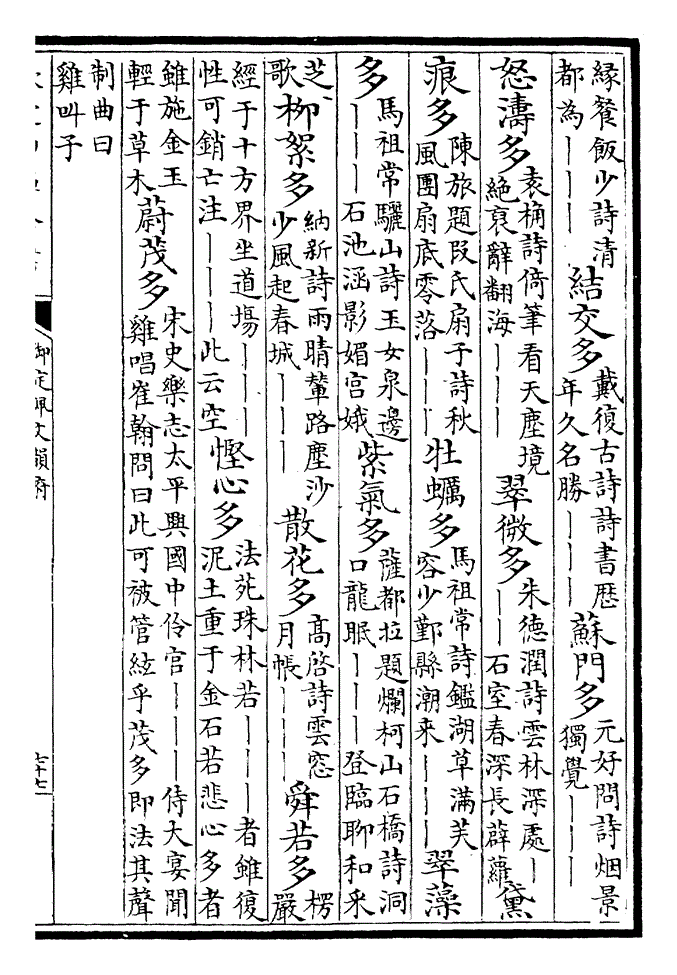 緣餐飯少詩清
都為｜｜｜
結交多
戴復古詩詩書歷
年久名勝｜｜｜
蘇門多
元好問詩烟景
獨覺｜｜｜
怒濤多
袁桷詩倚筆看天塵境
絶裒辭翻海｜｜｜
翠微多
朱德潤詩雲林深處｜
｜｜石室春深長薜蘿
黛
痕多
陳旅題段氏扇子詩秋
風團扇底零落｜｜｜
牡蠣多
馬祖常詩鑑湖草滿芙
容少鄞縣潮来｜｜｜
翠藻
多
馬祖常驪山詩玉女泉邊
｜｜｜石池涵影媚宫娥
紫氣多
薩都拉題爛柯山石橋詩洞
口龍眠｜｜｜登臨聊和采
芝
歌
柳絮多
納新詩雨晴輦路塵沙
少風起春城｜｜｜
散花多
高啓詩雲窓
月帳｜｜｜
舜若多
楞
嚴
經于十方界坐道塲｜｜｜
性可銷亡注｜｜｜此云空
慳心多
法苑珠林若｜｜｜者雖復
泥土重于金石若悲心多者
雖施金玉
輕于草木
蔚茂多
宋史樂志太平興國中伶官｜｜｜侍大宴聞
雞唱崔翰問曰此可被管絃乎茂多即法其聲
制曲曰
雞叫子
御定佩文韻府
七十七